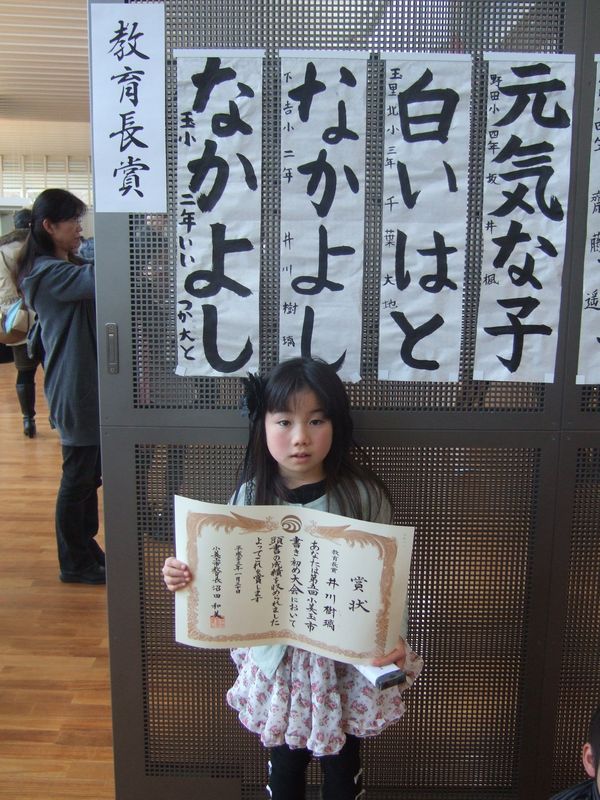 齋藤 遥
元気な子
野田小 四年 坂井 楓
白いはと
玉里北小 三年 千葉大地
なかよし
下吉小 二年 井川樹璃
なかよし
玉小 二年 いいつか大と
教育長賞
賞状
教育長賞 井川樹璃
あなたは第五回小美玉市
書き初め大会において
頭書の成績を収められました
よってこれを賞します
小美玉市教育長 沼田和美